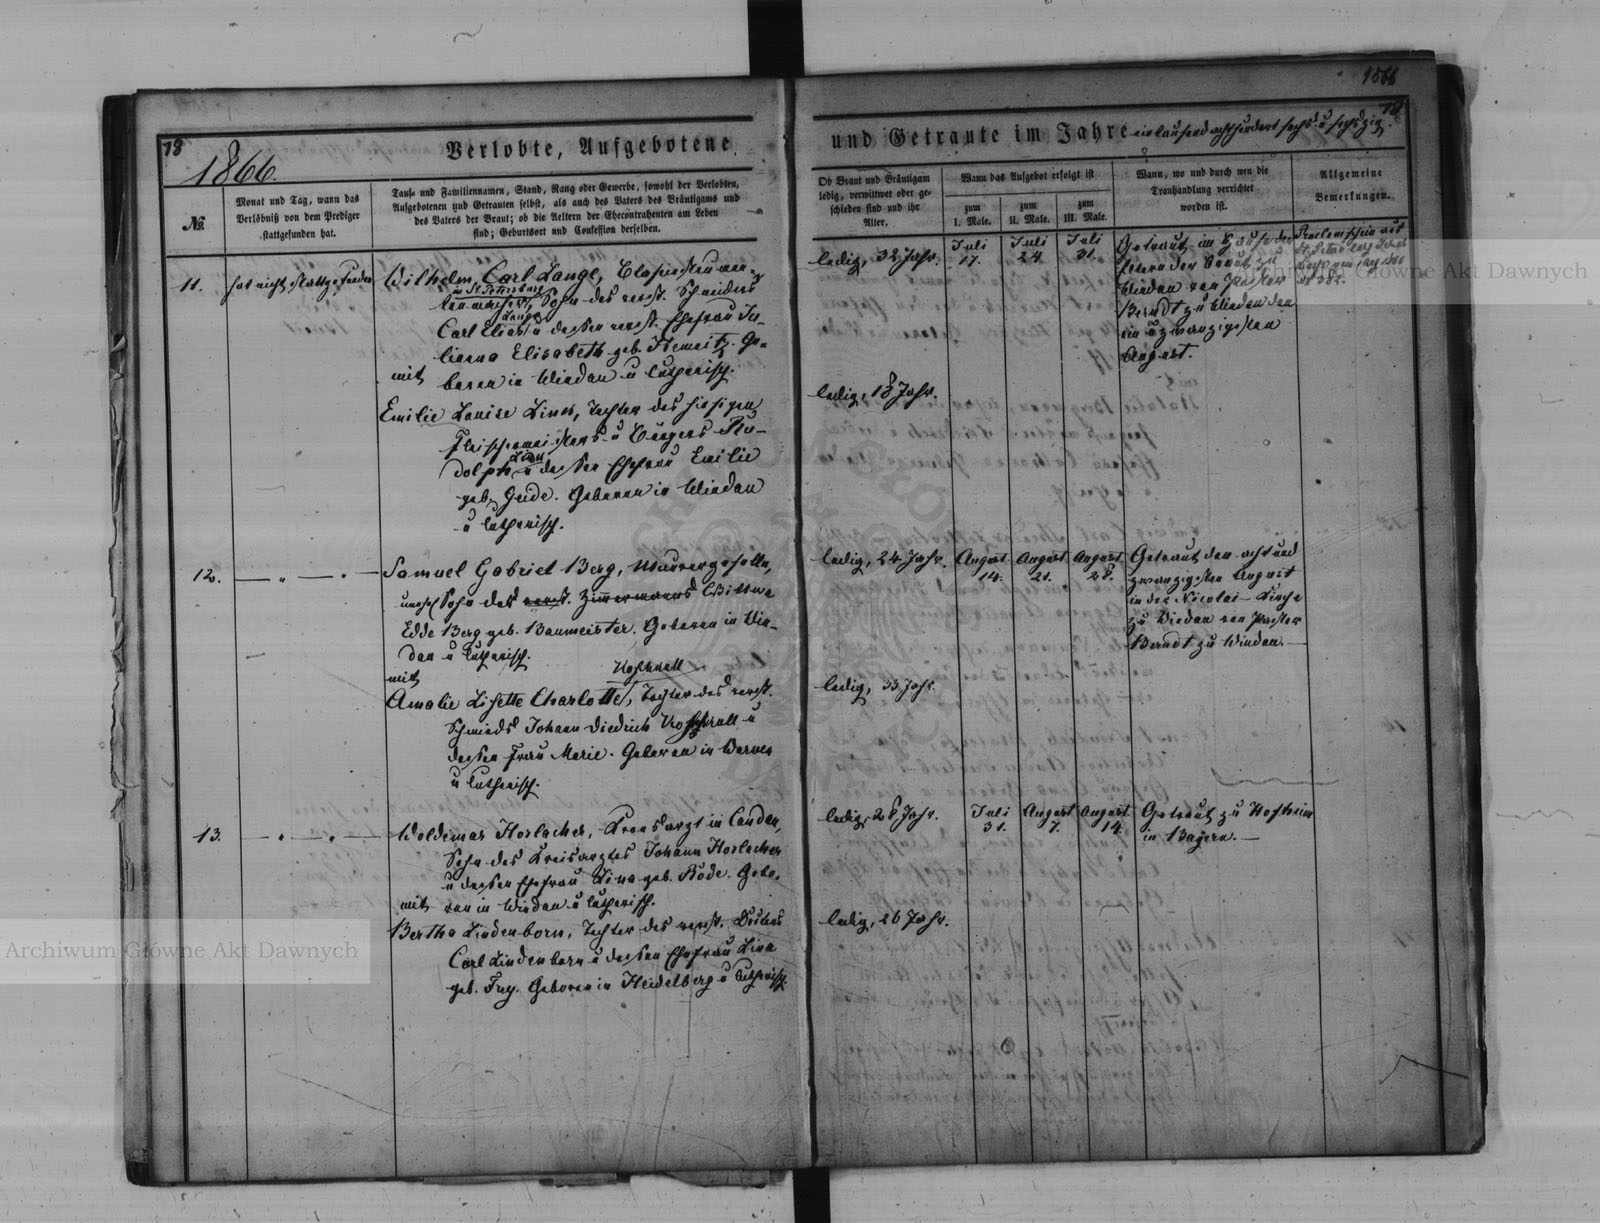 1866
78
1866.
Verlobte, Aufgebotene
№.
Monat und Tag, wann das
Verlöbniß von dem Prediger
stattgefunden hat.
Tauf- und Familiennamen, Stand, Rang oder Gewerbe, sowohl der Verlobten,
Aufgebotenen und Getrauten selbst, als auch des Vaters des Bräutigams und
des Vaters der Braut; ob die Aeltern der Ehecontrahenten am Leben
sind; Geburtsort und Confession derselben.
11. hat nicht stattgefunden
Wilhelm Carl Lange,
u. St. Petersburg
Sohn des verst. Schneiders
Lange
Carl Elias u dessen verst. Ehefrau Ju-
lianna Elisabeth geb. Ge-
boren in Windau u lutherisch.
mit
Emilie Louise Linck, Tochter des hiesigen
Fleischermeisters u Bürgers Ru-
dolph u dessen Ehefrau Emilie
geb. Geide. Geboren in Windau
u lutherisch.
12.
Samuel Gabriel Berg, Maurergeselle,
Sohn des verst. Zimmermanns Wittwe
Edde Berg geb. Baumeister. Geboren in Win-
dau u lutherisch.
mit
Amalie Lisette Charlotte, Tochter des verst.
Schmieds Johann Diedrich u
dessen Frau Marie. Geboren in
u lutherisch.
13.
Woldemar Horlacher, Kreisarzt in Candau,
Sohn des Kreisarztes Johann Horlacher
u dessen Ehefrau Lina geb. Rode. Gebo-
ren in Windau u lutherisch.
mit
Bertha Lindenborn, Tochter des verst.
Carl Lindenborn u dessen Ehefrau Lina
geb. Geboren in Heidelberg u lutherisch.
und Getraute im Jahre eintausend achthundert sechs u sechszig.
Ob Braut und Bräutigam
ledig, verwittwet oder ge-
schieden sind und ihr
Alter.
Wann das Aufgebot erfolgt ist
zum
I. Male.
zum
II. Male.
zum
III. Male.
Wann, wo und durch wen die
Trauhandlung verrichtet
worden ist.
Allgemeine
Bemerkungen.
ledig, 32 Jahr.
Juli
17.
Juli
24.
Juli
31.
Getraut im Hause der
Eltern der Braut zu
Windau von Pastor
Berndt zu Windau den
ein u zwanzigsten
August.
Proclamschein aus
St. Petersburg
ledig, 18 Jahr.
ledig, 24 Jahr.
August
14.
August
21.
August
28.
Getraut den acht und
zwanzigsten August
in der Nicolai-Kirche
zu Windau von Pastor
Berndt zu Windau.
ledig, 33 Jahr.
ledig, 28 Jahr.
Juli
31.
August
7.
August
14.
Getraut zu Hofheim
in Bayern.
ledig, 26 Jahr.
Archiwum Główne Akt Dawnych
Archiwum Główne Akt Dawnych